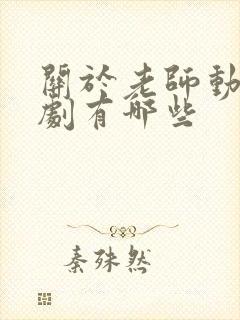 關於老師動
劇有哪些
秦殊然